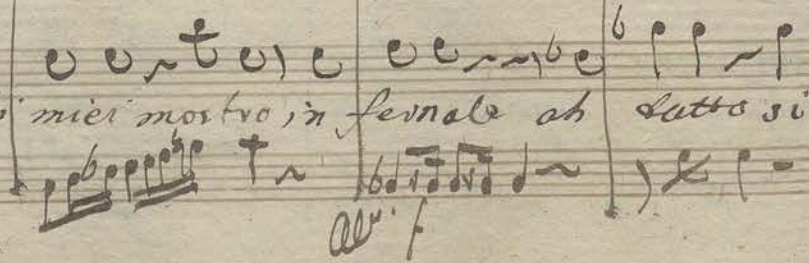 miei mostro in fernale ah tutto si
All.º f